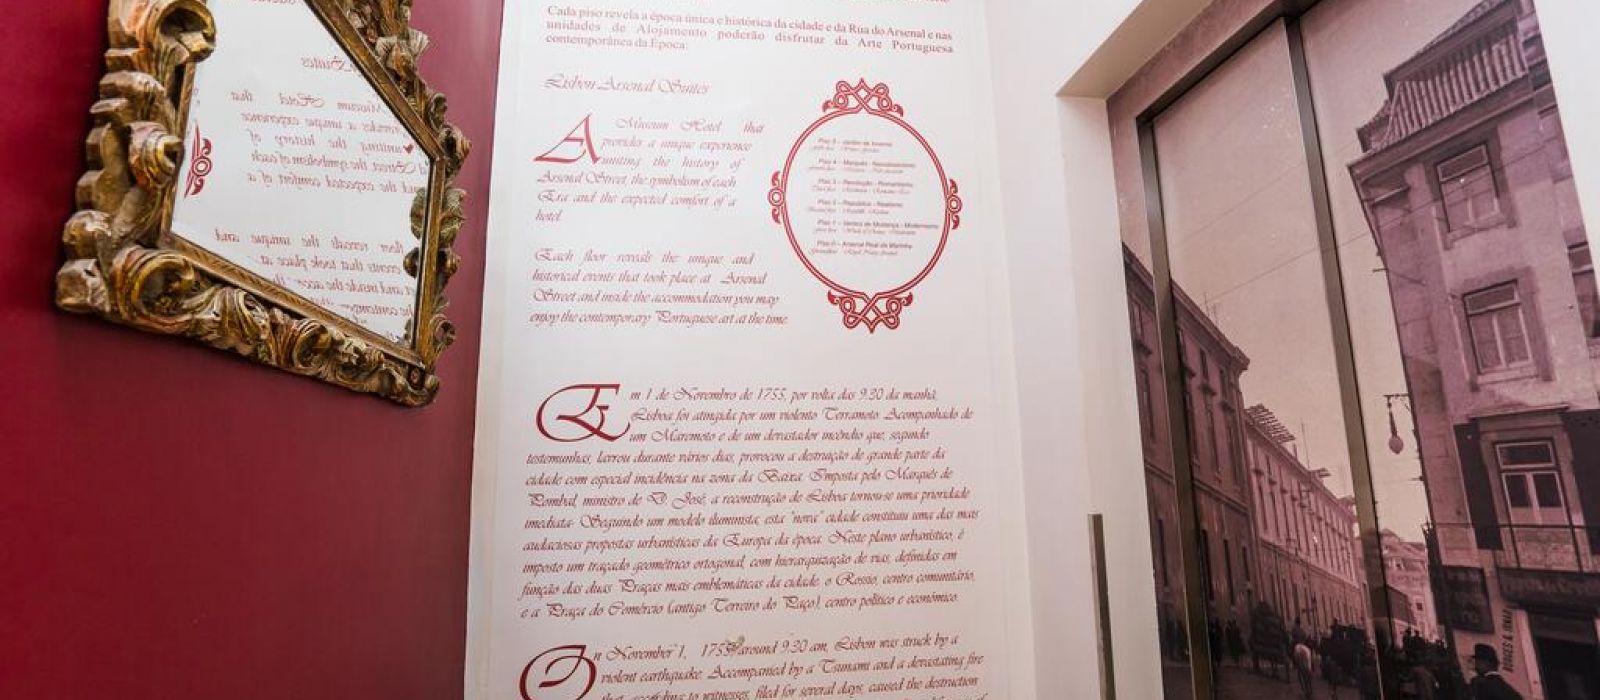 Cada piso revela a época única e histórica da cidade e da Rua do Arsenal e nas
unidades de Alojamento poderão disfrutar da Arte Portuguesa
contemporânea da Época:
Lisbon Arsenal Suites
A Museum Hotel that
provides a unique experience
uniting the history of
Arsenal Street, the symbolism of each
Era and the expected comfort of a
hotel.
Each floor reveals the unique and
historical events that took place at Arsenal
Street and inside the accommodation you may
enjoy the contemporary Portuguese art at the time.
Piso 5 - Jardim de Inverno
Piso 4 - Marquês - Neoclassicismo
Piso 3 - Revolução - Romantismo
Piso 2 - República - Realismo
Piso 1 - Ventos de Mudança - Modernismo
Piso 0 - Arsenal Real da Marinha
Em 1 de Novembro de 1755, por volta das 9.30 da manhã,
Lisboa foi atingida por um violento Terramoto. Acompanhado de
um Maremoto e de um devastador incêndio que, segundo
testemunhas, lavrou durante vários dias, provocou a destruição de grande parte da
cidade com especial incidência na zona da Baixa. Imposta pelo Marquês de
Pombal, ministro de D. José, a reconstrução de Lisboa tornou-se uma prioridade
imediata. Seguindo um modelo iluminista, esta "nova" cidade constituiu uma das mais
audaciosas propostas urbanísticas da Europa da época. Neste plano urbanístico, é
imposto um traçado geométrico ortogonal, com hierarquização de vias, definidas em
função das duas Praças mais emblemáticas da cidade: o Rossio, centro comunitário,
e a Praça do Comércio (antigo Terreiro do Paço), centro político e económico.
On November 1, 1755 around 9.30 am, Lisbon was struck by a
violent earthquake. Accompanied by a Tsunami and a devastating fire
that, according to witnesses, filed for several days, caused the destruction